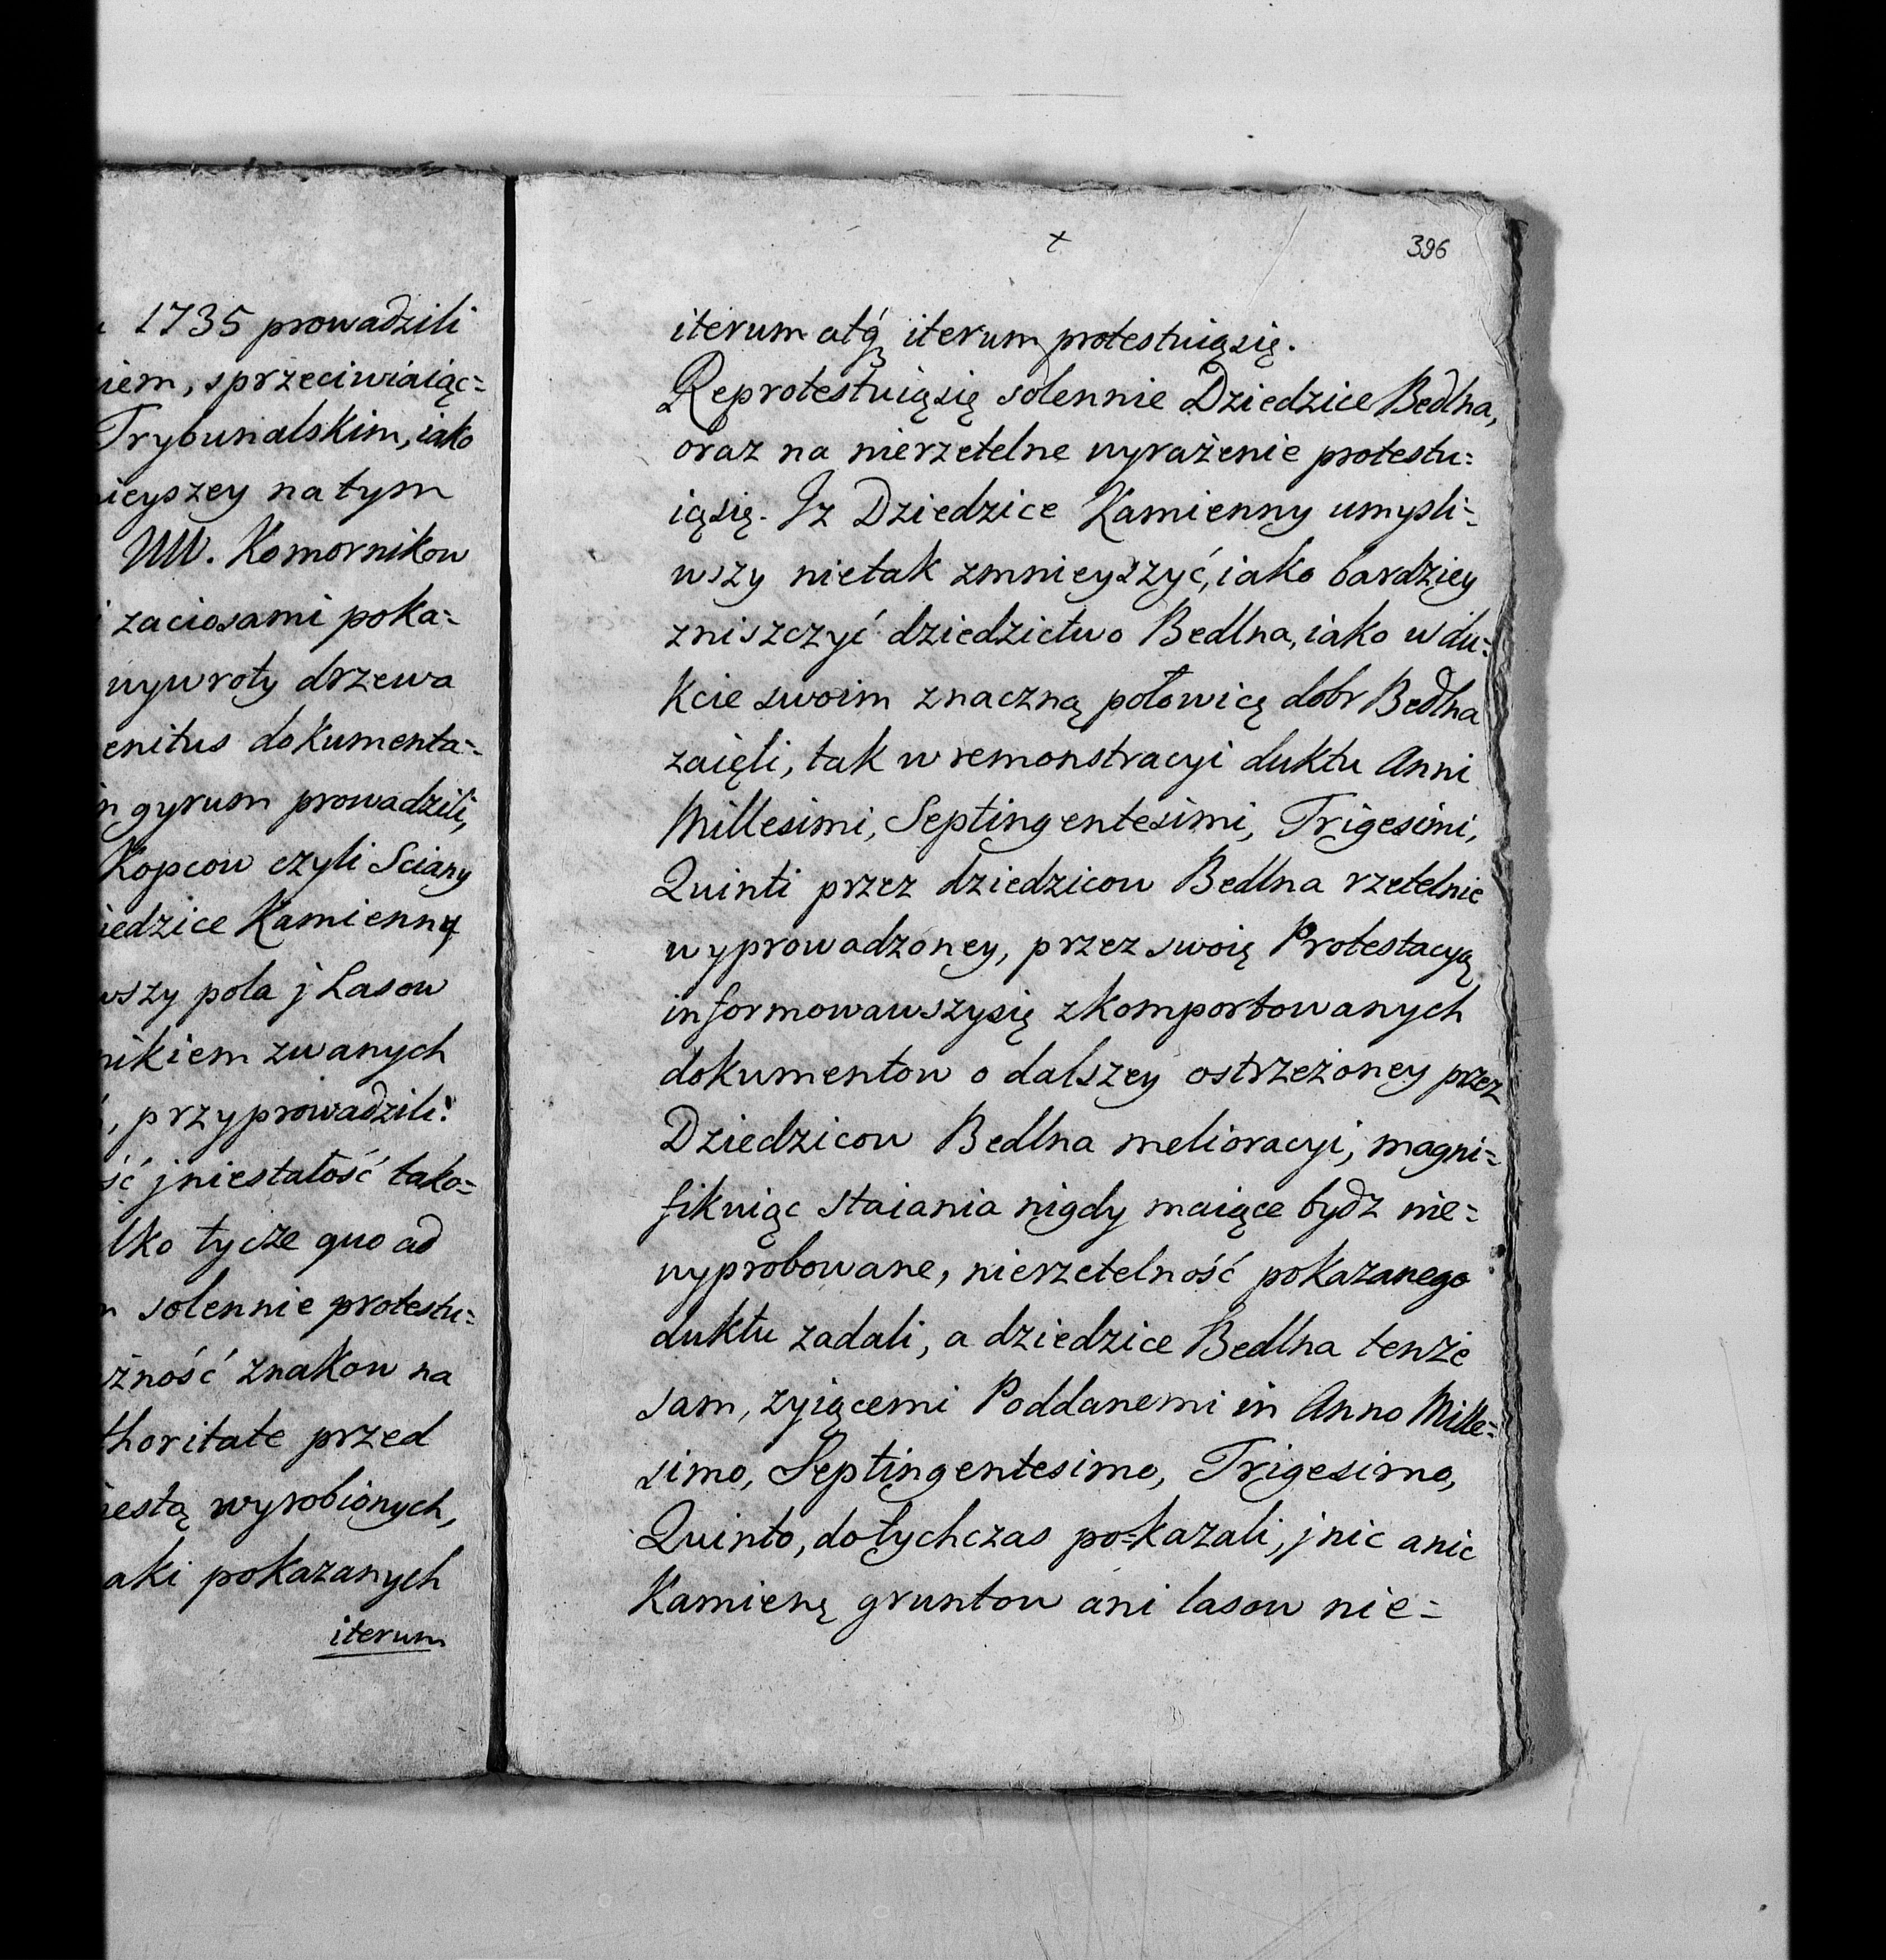 1735 prowadzili
iem, sprzeciwiaiąc=
Trybunalskim, iako
ieyszey na tym
UW. Komornikow
zaciosami poka=
wywroty drzewa
enitus dokumenta=
in gyrum prowadzili,
Kopcow czyli Sciany
iedzice Kamienny
wszy pola j Lasow
nikiem zwanych
, przyprowadzili:
ść j niestałość tako=
lko tycze quo ad
solennie protestu=
żność znakow na
thoritate przed
iestą wyrobionych,
aki pokazanych
iterum
396
iterum atq iterum protestuią się.
Reprotestuią się solennie Dziedzice Bedlna,
oraz na nierzetelne wyrażenie protestu=
ią się. Iz Dziedzice Kamienny umysli=
wszy nietak zmnieyszyć, iako bardziey
zniszczyć dziedzictwo Bedlna, iako w du=
kcie swoim znaczną połowicę dobr Bedlna
zaięli, tak w remonstracyi duktu Anni
Millesimi, Septingentesimi, Trigesimi,
Quinti przez dziedzicow Bedlna rzetelnie
wyprowadzoney, przez swoię Protestacyą
informowawszysię zkomportowanych
dokumentow o dalszey ostrzeżoney przez
Dziedzicow Bedlna melioracyi, magni=
fikuiąc staiania nigdy maiące bydz nie=
wyprobowane, nierzetelność pokazanego
duktu zadali, a dziedzice Bedlna tenże
sam, zyiącemi Poddanemi in Anno Mille=
simo, Septingentesimo, Trigesimo,
Quinto, dotychczas po=kazali, j nic a nic
Kamieną gruntow ani lasow nie=